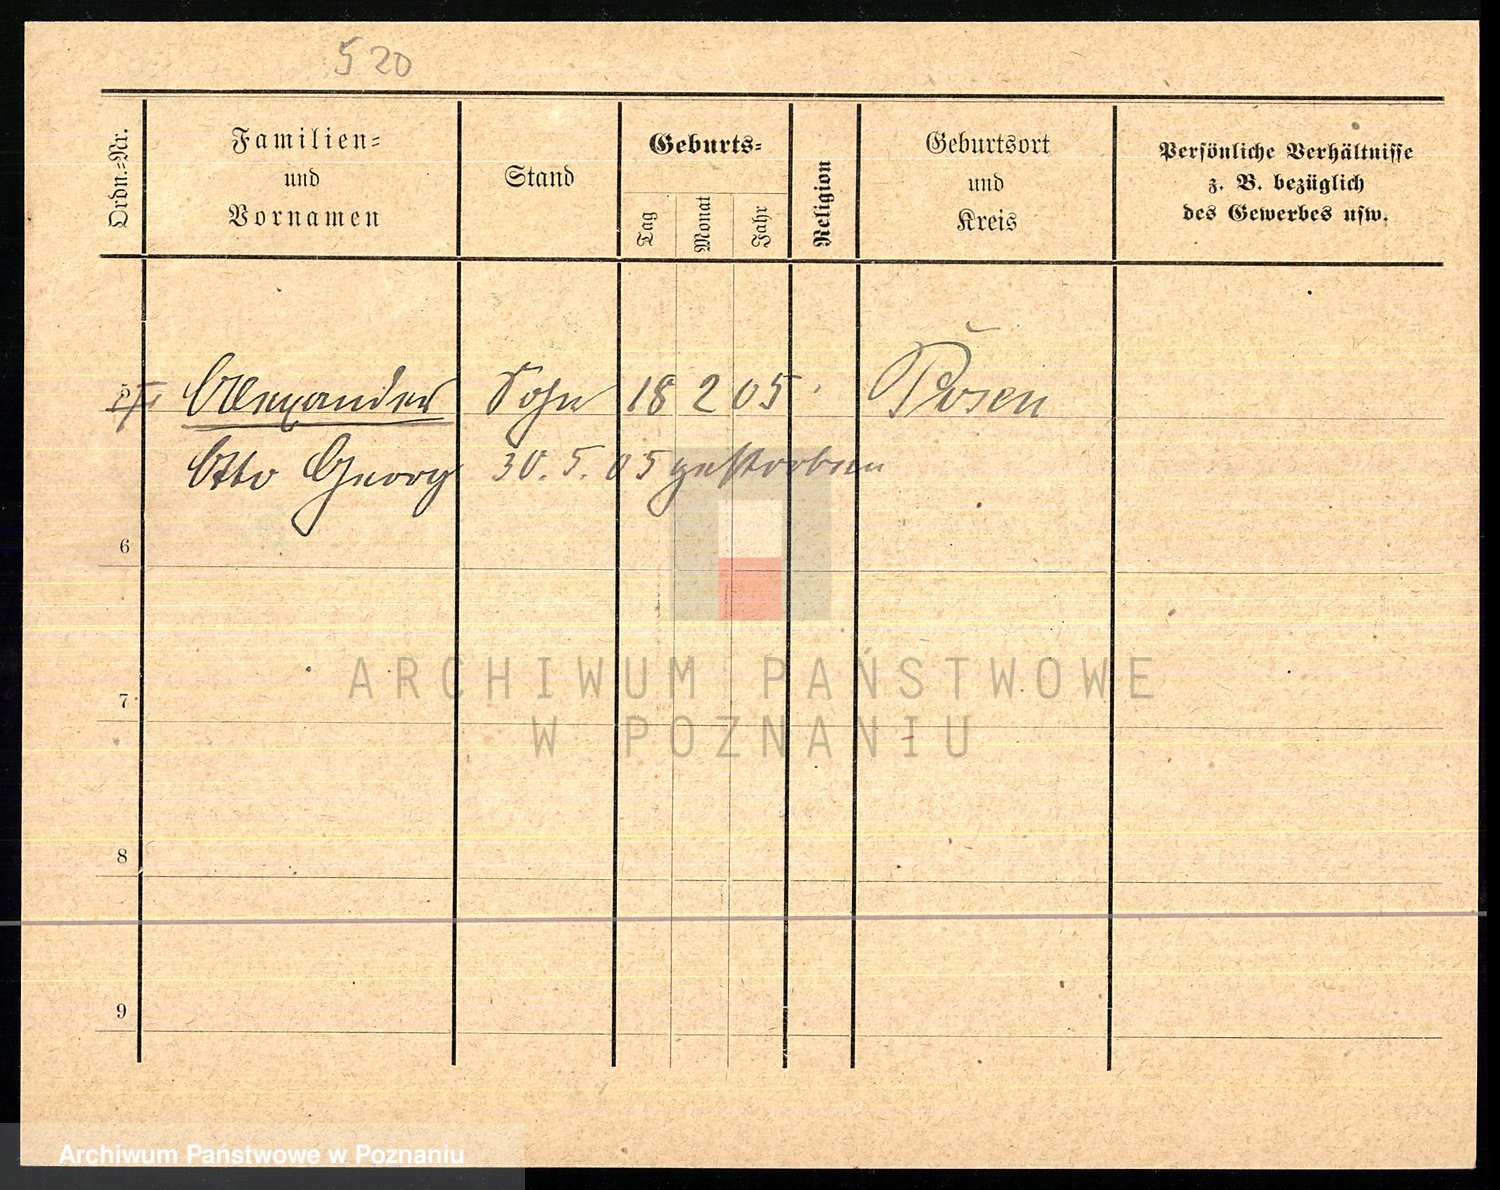 520
Ordn.-Nr.
Familien-
und
Vornamen
Stand
Geburts-
Tag
Monat
Jahr
Religion
Geburtsort
und
Kreis
Persönliche Verhältnisse
z. B. bezüglich
des Gewerbes usw.
5 Alexander Sohn 18 2 05 Posen
Otto Georg 30. 5. 05 gestorben
6
7
8
9
ARCHIWUM PAŃSTWOWE
W POZNANIU
Archiwum Państwowe w Poznaniu